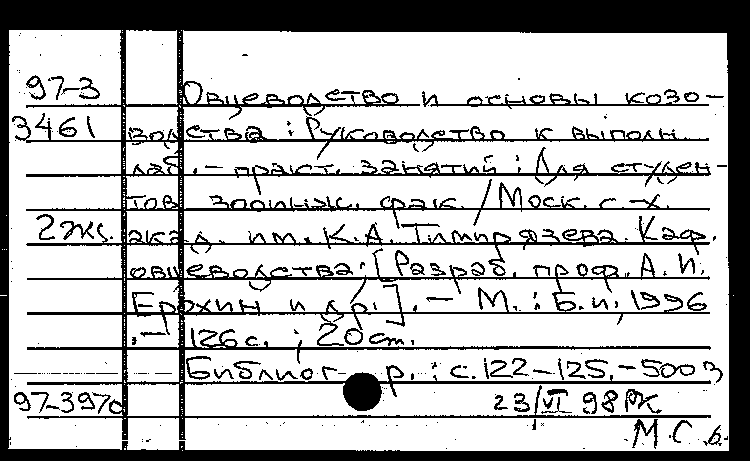 97-3 Овцеводство и основы козо-
3461 водства : Руководство к выполн.
лаб.-практ. занятий : Для студен-
тов зооинж. фак. / Моск. с.-х.
2 экз. акад. им. К.А. Тимирязева. Каф.
овцеводства; [Разраб. проф. А. И.
Ерохин и др.]. — М. : Б.и., 1996
.— 126 с. ; 20 см.
Библиогр.: с. 122-125.-500 э
97-3970 23/VI 98 РК
М С б.